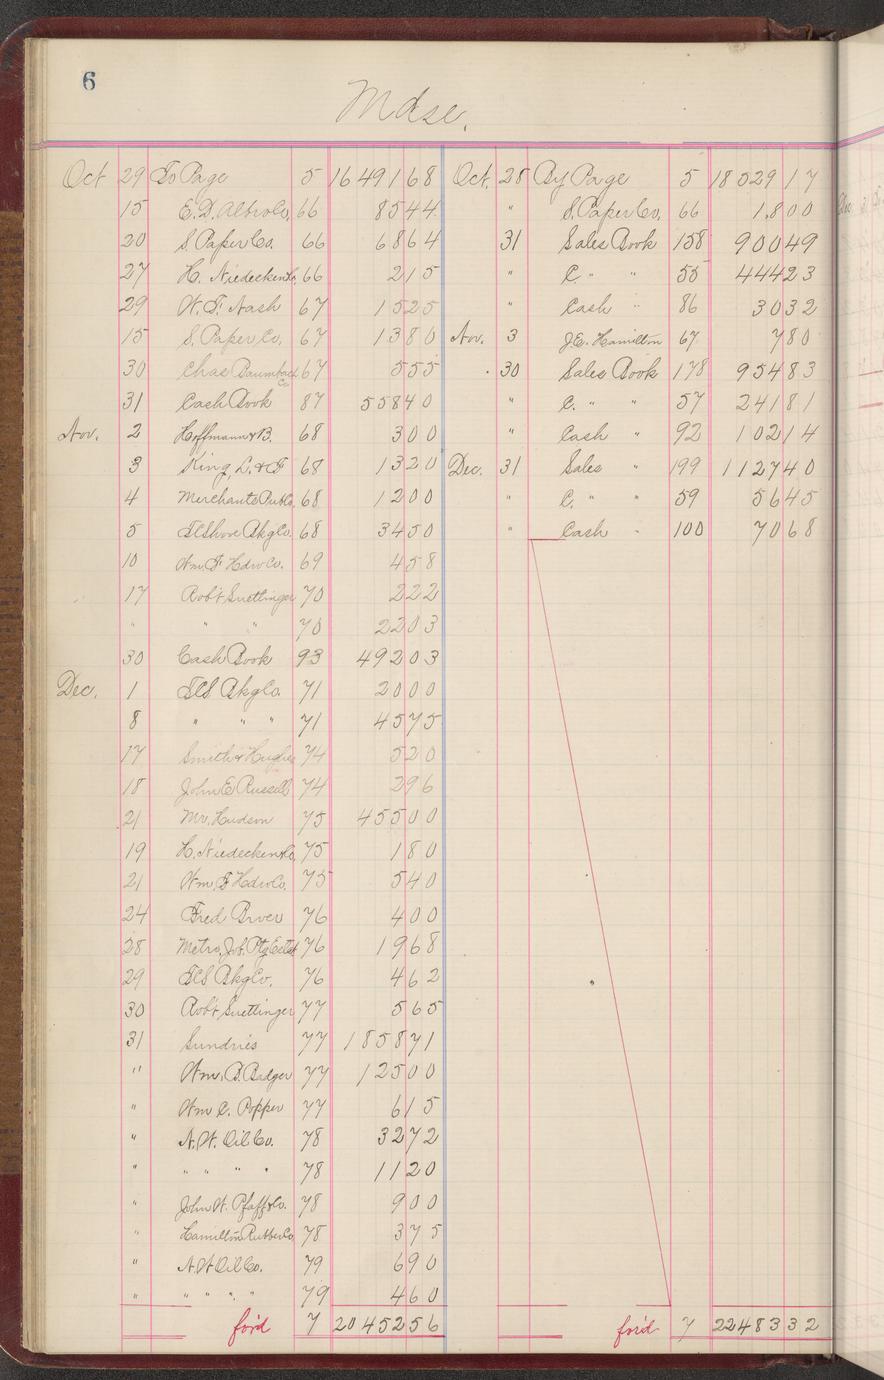 6
Mdse.
Oct 29 To Page 5 16491 68
15 E.D. Albro Co. 66 85 44
20 S. Paper Co. 66 68 64
27 H. Niedecken Co. 66 2 15
29 W. F. Nash 67 15 25
15 S. Paper Co. 67 13 80
30 Chas Baumbach Co 67 5 55
31 Cash Book 87 558 40
Nov. 2 Hoffmann & B. 68 3 00
3 King, L. & F 68 13 20
4 Merchants Pub Co. 68 12 00
5 Bkg Co. 68 34 50
10 Wm. F Hdw Co. 69 4 58
17 Rob't Suettinger 70 2 22
" " " 70 22 03
30 Cash Book 93 492 03
Dec. 1 Bkg Co. 71 20 00
8 " " " 71 45 75
17 Smith & Hughes 74 5 20
18 John E Russell 74 2 96
21 Mr. Hudson 75 455 00
19 H. Niedecken Co. 75 1 80
21 Wm. F Hdw Co. 75 5 40
24 Fred Brver 76 4 00
28 Metro. Job. Ptg 76 19 68
29 Bkg Co. 76 4 62
30 Rob't Suettinger 77 5 65
31 Sundries 77 1858 71
" Wm. B. Badger 77 125 00
" Wm C. Popper 77 6 15
" N. W. Oil Co. 78 32 72
" " " " " 78 11 20
" John W. Pfaff & Co. 78 9 00
" Hamilton Rubber Co 78 3 75
" N. W Oil Co. 79 6 90
" " " " " 79 4 60
for'd 7 20452 56
Oct. 28 By Page 5 18029 17
" S. Paper Co. 66 18 00
31 Sales Book 158 900 49
" C. " " 55 444 23
" Cash " 86 30 32
Nov. 3 J.E. Hamilton 67 7 80
30 Sales Book 178 954 83
" C. " " 57 241 81
" Cash " 92 102 14
Dec. 31 Sales " 199 1127 40
" C. " " 59 56 45
" Cash " 100 70 68
for'd 7 22483 32